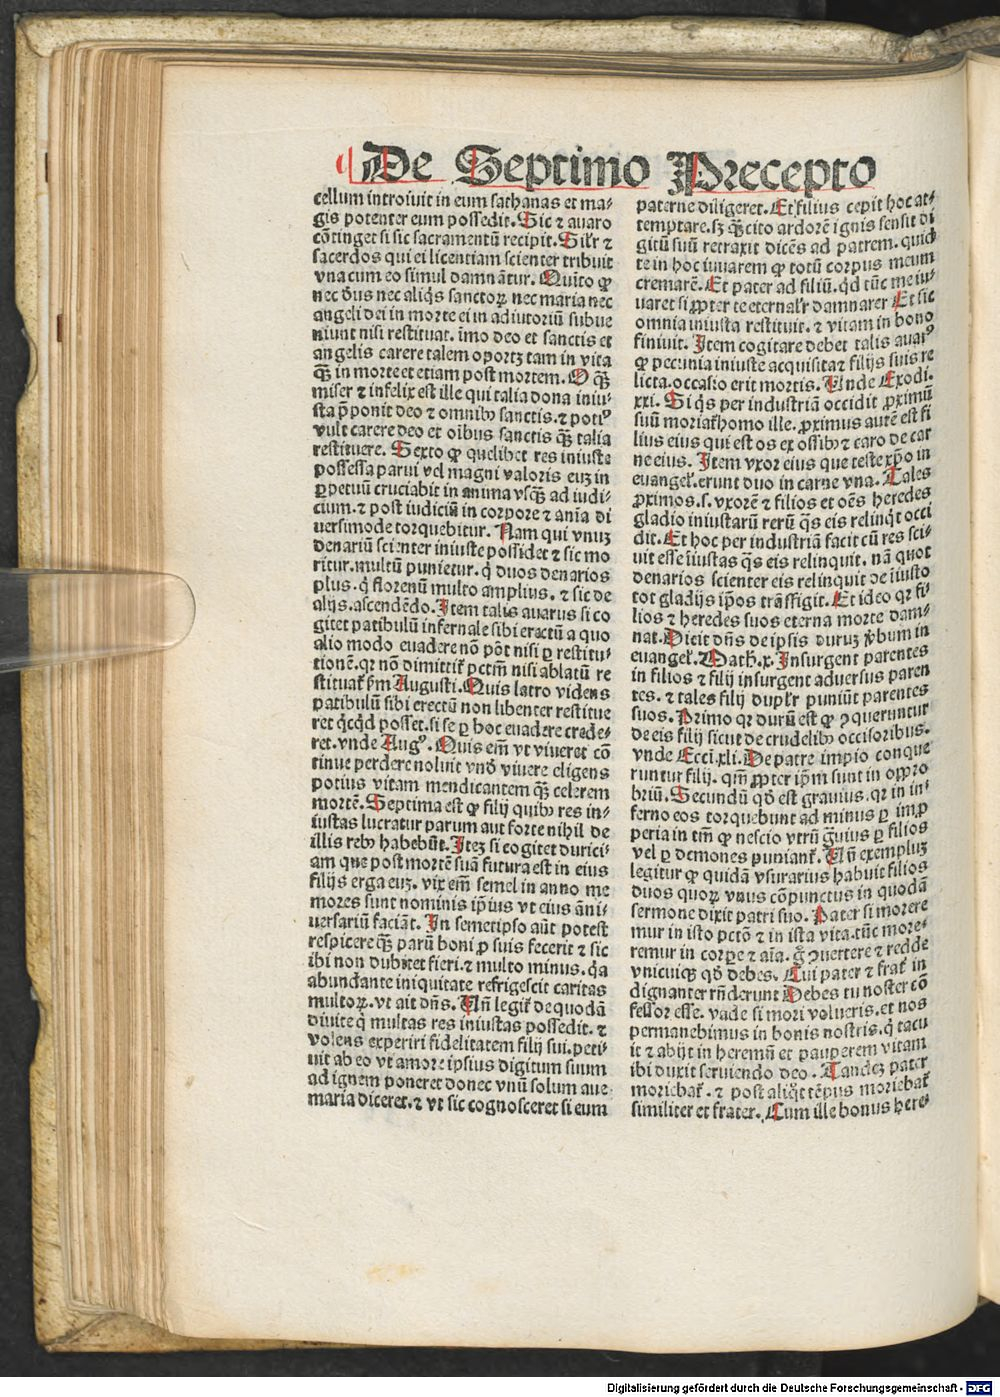 De Septimo Precepto
cellum introiuit in eum sathanas et ma⸗
gis potenter eum possedit. Sic ⁊ auaro
cõtinget si sic sacramentũ recipit. Silr ⁊
sacerdos qui ei licentiam scienter tribuit
vna cum eo simul damnãtur. Quĩto ꝙ
nec dñs nec aliqs sanctoꝝ nec maria nec
angeli dei in morte ei in adiutoriũ subue
niunt nisi restituat. ĩmo deo et sanctis et
angelis carere talem oportꝫ tam in vita
qꝫ̃ in morte et etiam post mortem. O qꝫ̃
miser ⁊ infelix est ille qui talia dona iniu⸗
sta p̃ponit deo ⁊ omnibꝫ sanctis. ⁊ potiꝰ
vult carere deo et oĩbus sanctis qꝫ̃ talia
restituere. Sexto ꝙ quelibet res iniuste
possessa parui vel magni valoris euꝫ in
ꝑpetuũ cruciabit in anima vsqꝫ ad iudi⸗
cium. ⁊ post iudiciũ in corpore ⁊ anĩa di
uersimode torquebitur. Nam qui vnuꝫ
denariũ scienter iniuste possidet ⁊ sic mo
ritur. multũ punietur. q̇ duos denarios
plus. q̇ florenũ multo amplius. ⁊ sic de
alijs. ascendẽdo. Item talis auarus si co
gitet patibulũ infernale sibi erectũ a quo
alio modo euadere nõ põt nisi ꝑ restitu⸗
tionẽ. qr nõ dimittit̃ pctm̃ nisi ablatũ re
stituat̃ ẜm Augusti. Quis latro videns
patibulũ sibi erectũ non libenter restitue
ret q̇cq̇d posset. si se ꝑ hoc euadere crede⸗
ret. vnde Augꝰ. Quis em̃ vt viueret cõ
tinue perdere noluit vnõ viuere eligens
potius vitam mendicantem qꝫ̃ celerem
mortẽ. Septima est ꝙ filij quibꝫ res in⸗
iustas lucratur parum aut forte nihil de
illis rebꝫ habebũt. Iteꝫ si cogitet durici⸗
am que post mortẽ suã futura est in eius
filijs erga euꝫ. vix em̃ semel in anno me
mores sunt nominis ip̃ius vt eius ãni⸗
uersariũ faciãt. In semetipso aũt potest
respicere qꝫ̃ parũ boni ꝓ suis fecerit ⁊ sic
ibi non dubitet fieri. ⁊ multo minus. q̇a
abundante iniquitate refrigescit caritas
multoꝝ. vt ait dñs. Vñ legit̃ de quodã
diuite q̇ multas res iniustas possedit. ⁊
volens experiri fidelitatem filij sui. peti⸗
uit ab eo vt amore ipsius digitum suum
ad ignem poneret donec vnũ solum aue
maria diceret. ⁊ vt sic cognosceret si eum
paterne diligeret. Et filius cepit hoc at⸗
temptare. sꝫ qꝫ̃cito ardorẽ ignis sensit di
gitũ suũ retraxit dicẽs ad patrem. quid
te in hoc iuuarem ꝙ totũ corpus meum
cremarẽ. Et pater ad filiũ. q̇d tũc me iu⸗
uaret si ꝓpter te eternalr̃ damnarer Et sic
omnia iniusta restituit. ⁊ vitam in bono
finiuit. Item cogitare debet talis auarꝰ
ꝙ pecunia iniuste acquisita ⁊ filijs suis re
licta. occasio erit mortis. Vnde Exodi.
xxi. Si q̇s per industriã occidit ꝓximũ
suũ moriat̃ homo ille. ꝓximus autẽ est fi
lius eius qui est os ex ossibꝫ ⁊ caro de car
ne eius. Item vxor eius que teste xp̃o in
euangel̃. erunt duo in carne vna. Tales
ꝓximos. s. vxorẽ ⁊ filios et oẽs heredes
gladio iniustarũ rerũ q̃s eis relinq̇t occi
dit. Et hoc per industriã facit cũ res sci⸗
uit esse ĩiustas q̃s eis relinquit. nã quot
denarios scienter eis relinquit de ĩiusto
tot gladijs ip̃os trãsfigit. Et ideo qr fi⸗
lios ⁊ heredes suos eterna morte dam⸗
nat. Dicit dñs de ipsis duruꝫ ṽbum in
euangel̃. Math̃. x. Insurgent parentes
in filios ⁊ filij insurgent aduersus paren
tes. ⁊ tales filij duplr̃ puniũt parentes
suos. Primo qr durũ est ꝙ ꝯqueruntur
de eis filij sicut de crudelibꝫ occisoribus.
vnde Ecci. xli. De patre impio conque
runtur filij. qm̃ ꝓpter ip̃m sunt in oppro
briũ. Secundũ qõ est grauius. qr in in⸗
ferno eos torquebunt ad minus ꝑ imꝓ
peria in tm̃ ꝙ nescio vtrũ g̃uius ꝑ filios
vel ꝑ demones puniant̃. Vñ exempluꝫ
legitur ꝙ quidã vsurarius habuit filios
duos quoꝝ vnus cõpunctus in quodã
sermone dixit patri suo. Pater si morere
mur in isto pctõ ⁊ in ista vita. tũc more⸗
remur in corpe ⁊ aĩa. g̊ ꝯuertere ⁊ redde
vnicuiqꝫ qõ debes. Cui pater ⁊ frat̃ in
dignanter rñderunt Debes tu noster cõ
fessor esse. vade si mori volueris. et nos
permanebimus in bonis nostris. q̇ tacu
it ⁊ abijt in heremũ et pauperem vitam
ibi duxit seruiendo deo. Tandeꝫ pater
moriebat̃. ⁊ post aliq̇t tẽpus moriebat̃
similiter et frater. Cum ille bonus here⸗
Digitalisierung gefördert durch die Deutsche Forschungsgemeinschaft - DFG